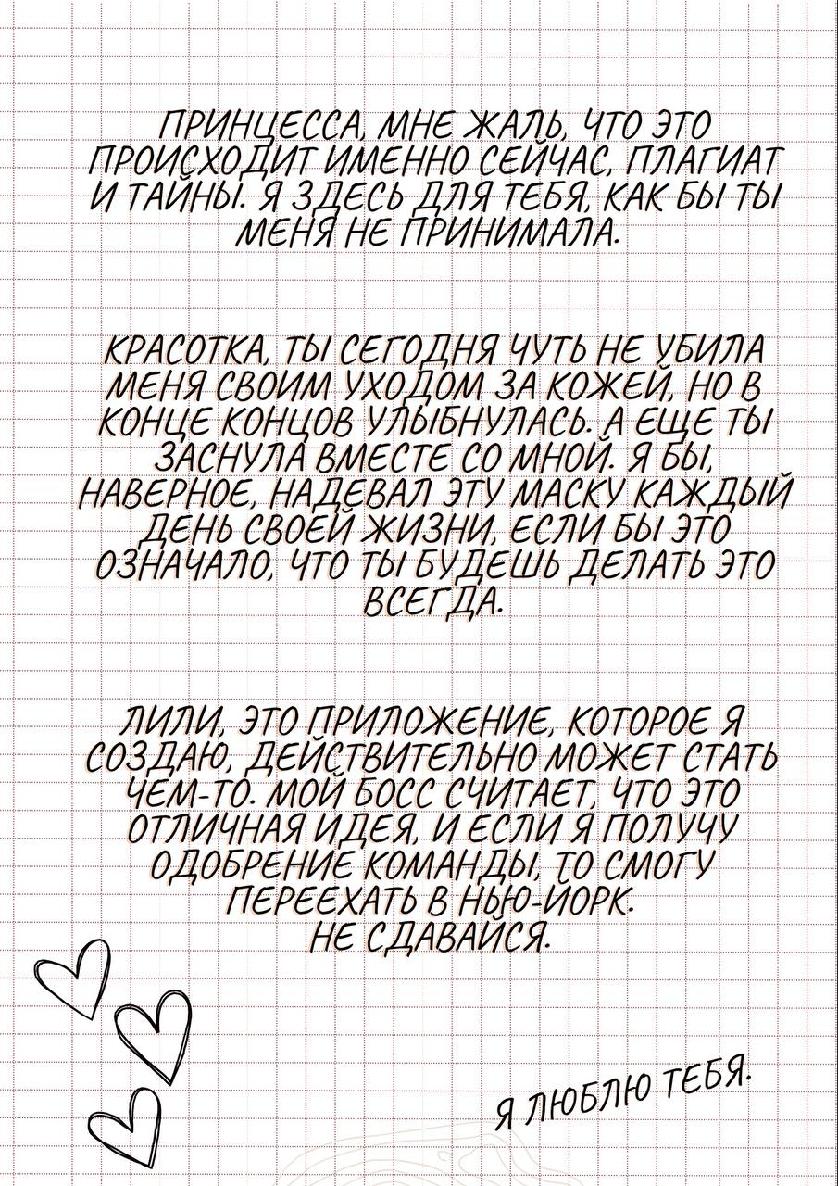 ПРИНЦЕССА, МНЕ ЖАЛЬ, ЧТО ЭТО
ПРОИСХОДИТ ИМЕННО СЕЙЧАС, ПЛАГИАТ
И ТАЙНЫ. Я ЗДЕСЬ ДЛЯ ТЕБЯ, КАК БЫ ТЫ
МЕНЯ НЕ ПРИНИМАЛА.
КРАСОТКА, ТЫ СЕГОДНЯ ЧУТЬ НЕ УБИЛА
МЕНЯ СВОИМ УХОДОМ ЗА КОЖЕЙ, НО В
КОНЦЕ КОНЦОВ УЛЫБНУЛАСЬ. А ЕЩЕ ТЫ
ЗАСНУЛА ВМЕСТЕ СО МНОЙ. Я БЫ,
НАВЕРНОЕ, НАДЕВАЛ ЭТУ МАСКУ КАЖДЫЙ
ДЕНЬ СВОЕЙ ЖИЗНИ, ЕСЛИ БЫ ЭТО
ОЗНАЧАЛО, ЧТО ТЫ БУДЕШЬ ДЕЛАТЬ ЭТО
ВСЕГДА.
ЛИЛИ, ЭТО ПРИЛОЖЕНИЕ, КОТОРОЕ Я
СОЗДАЮ, ДЕЙСТВИТЕЛЬНО МОЖЕТ СТАТЬ
ЧЕМ-ТО. МОЙ БОСС СЧИТАЕТ, ЧТО ЭТО
ОТЛИЧНАЯ ИДЕЯ, И ЕСЛИ Я ПОЛУЧУ
ОДОБРЕНИЕ КОМАНДЫ, ТО СМОГУ
ПЕРЕЕХАТЬ В НЬЮ-ЙОРК.
НЕ СДАВАЙСЯ.
Я ЛЮБЛЮ ТЕБЯ.